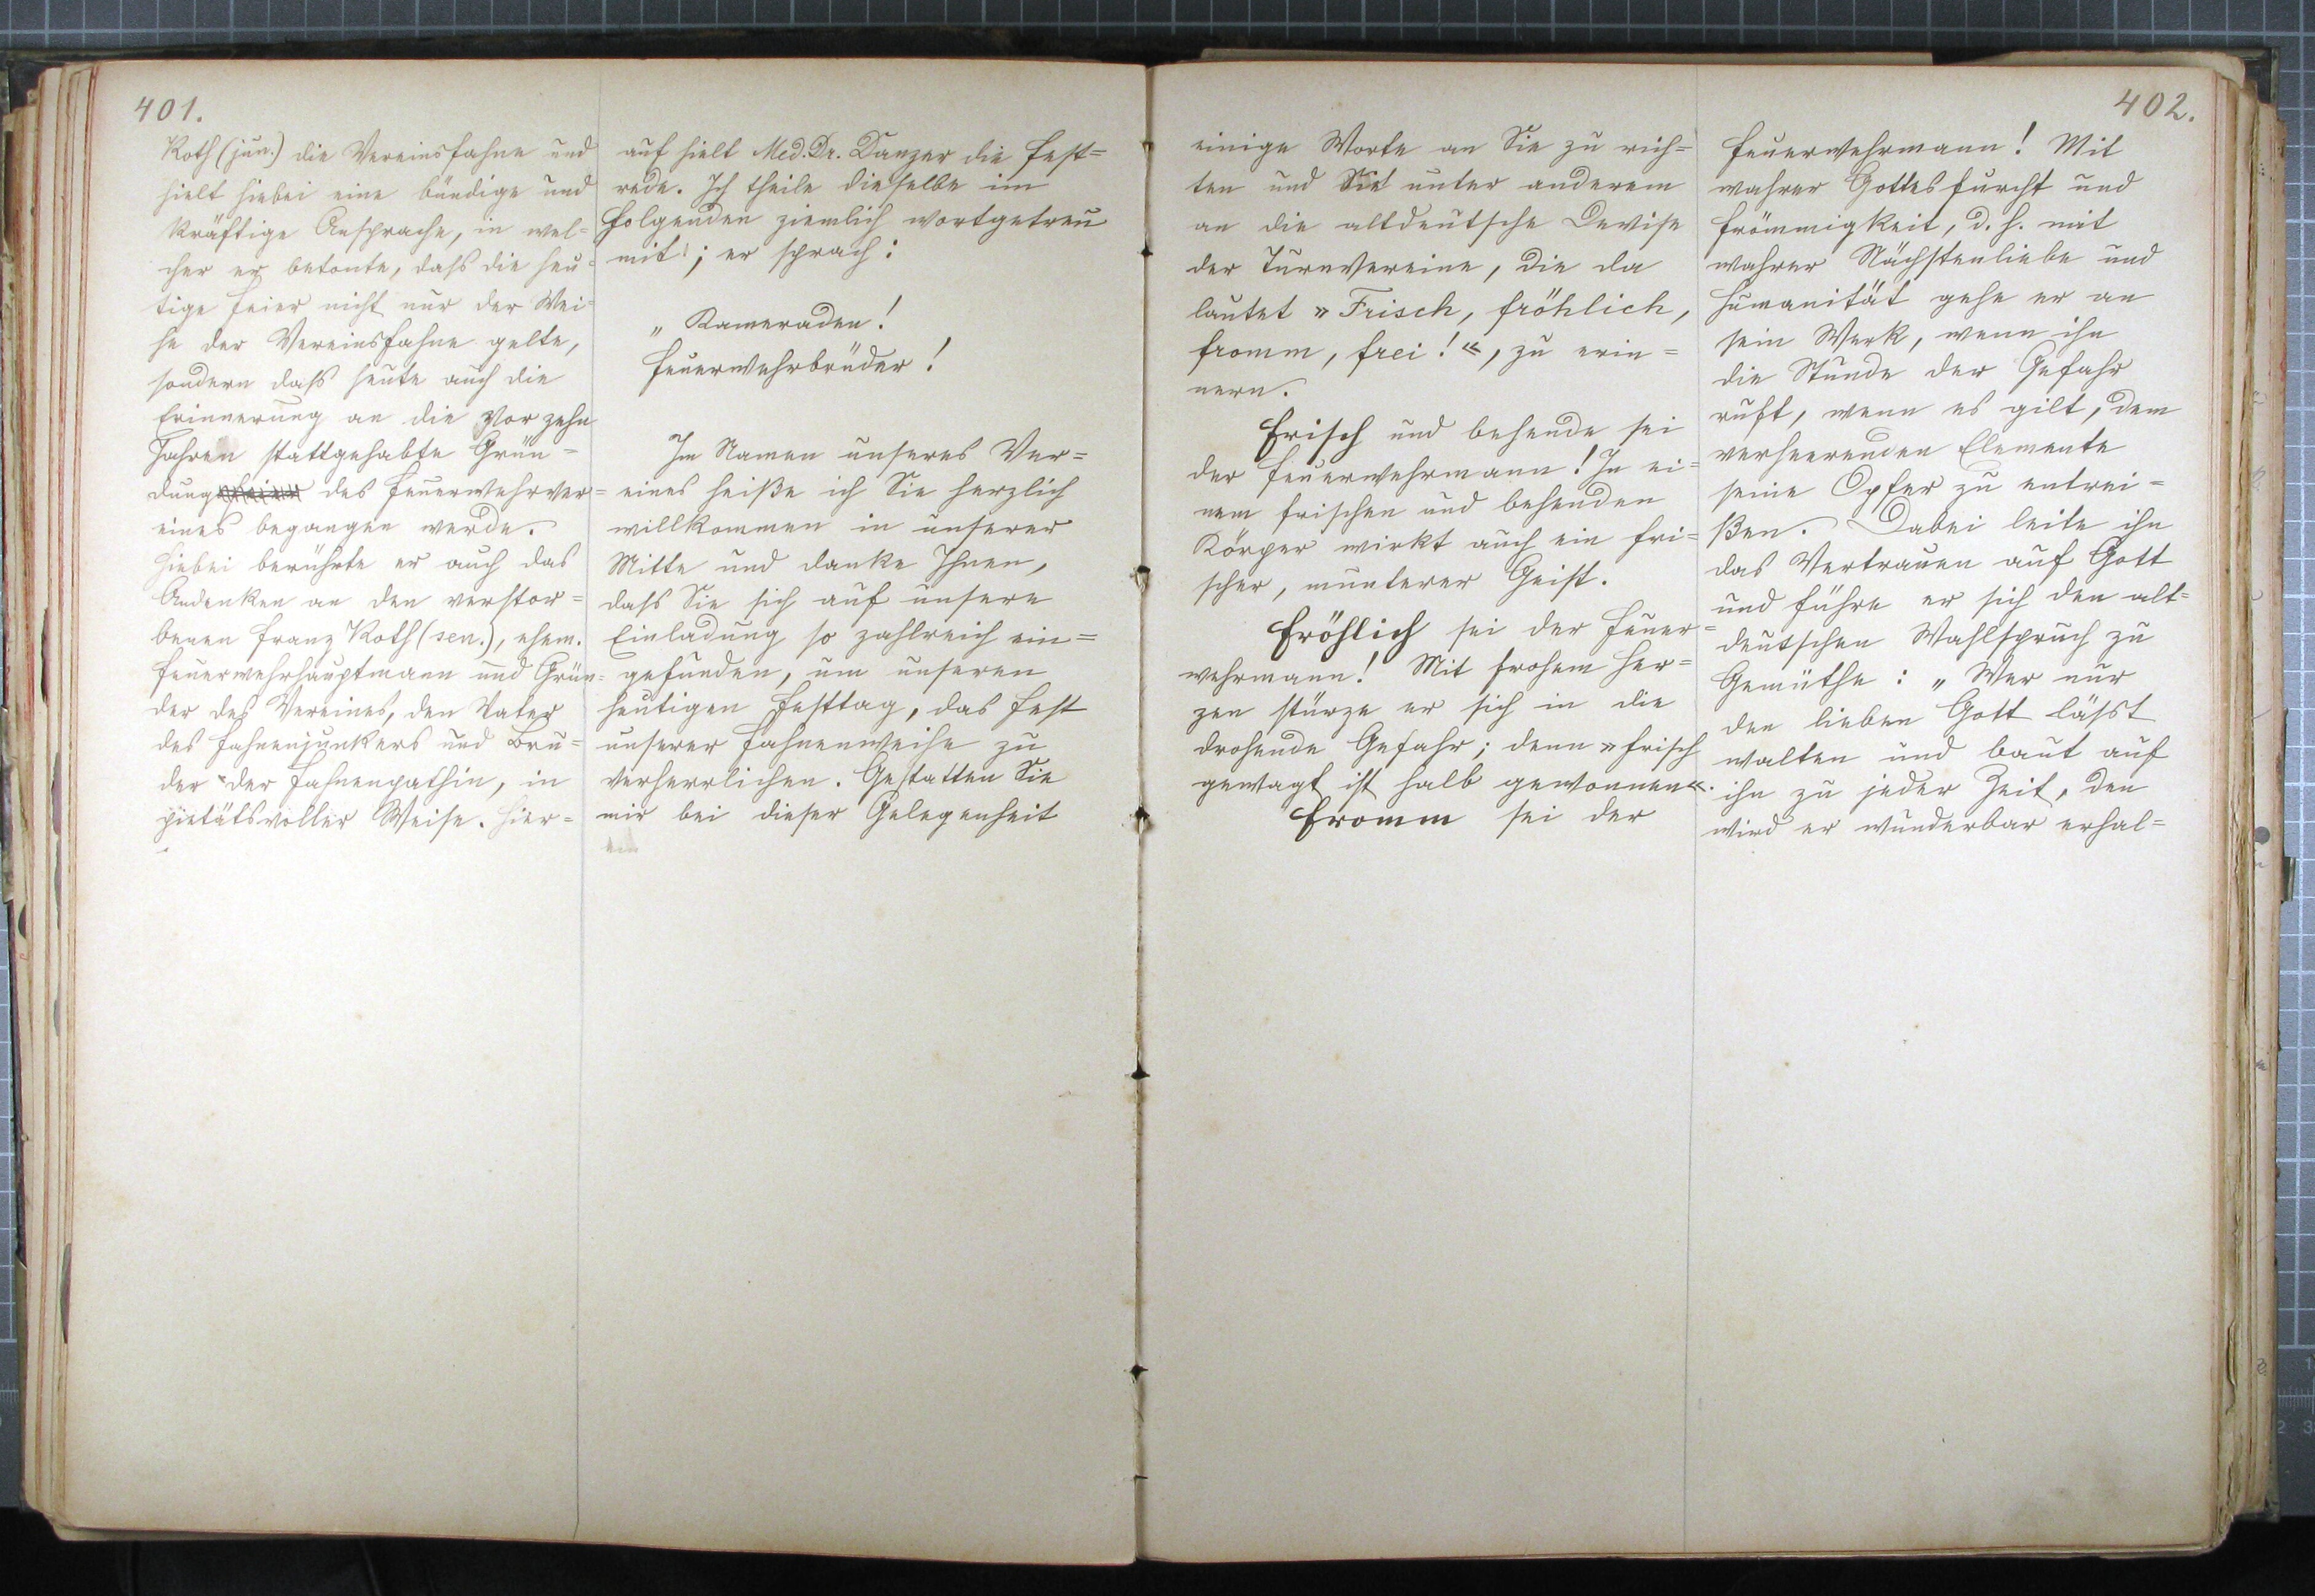 401.
Roth (jun.) die Vereinsfahne und
hielt hiebei eine bündige und
kräftige Ansprache, in wel-
cher er betonte, dafs die heu-
tige Feier nicht nur der Wei-
he der Vereinsfahne gelte,
sondern dafs heute auch die
Erinnerung an die vor zehn
Jahren stattgehabte Grün-
dung des Feuerwehrver-
eines begangen werde.
Hiebei berührte er auch das
Andenken an den verstor-
benen Franz Roth (sen.), ehem.
Feuerwehrhauptmann und Grün-
der des Vereines, den Vater
des Fahnenjunkers und Bru-
der der Fahnenpathin, in
pietätsvoller Weise. Hier-
auf hielt Med. Dr. Danzer die Fest-
rede. Ich theile dieselbe im
Folgenden ziemlich wortgetreu
mit; er sprach:
„Kameraden!
Feuerwehrbrüder!
Im Namen unseres Ver-
eines heiße ich Sie herzlich
willkommen in unserer
Mitte und danke Ihnen,
dafs Sie sich auf unsere
Einladung so zahlreich ein-
gefunden, um unseren
heutigen Festtag, das Fest
unserer Fahnenweihe zu
verherrlichen. Gestatten Sie
mir bei dieser Gelegenheit
402.
einige Worte an Sie zu rich-
ten und Sie unter anderem
an die altdeutsche Devise
der Turnvereine, die da
lautet »Frisch, fröhlich,
fromm, frei!«, zu erin-
nern.
Frisch und behende sei
der Feuerwehrmann! In ei-
nem frischen und behenden
Körper wirkt auch ein fri-
scher, munterer Geist.
Fröhlich sei der Feuer-
wehrmann! Mit frohem Her-
zen stürze er sich in die
drohende Gefahr; denn »frisch
gewagt ist halb gewonnen«.
Fromm sei der
Feuerwehrmann! Mit
wahrer Gottesfurcht und
Frömmigkeit, d. h. mit
wahrer Nächstenliebe und
Humanität gehe er an
sein Werk, wenn ihn
die Stunde der Gefahr
ruft, wenn es gilt, dem
verheerenden Elemente
seine Opfer zu entrei-
ßen. Dabei leite ihn
das Vertrauen auf Gott
und führe er sich den alt-
deutschen Wahlspruch zu
Gemüthe: „Wer nur
den lieben Gott läfst
walten und baut auf
ihn zu jeder Zeit, den
wird er wunderbar erhal-